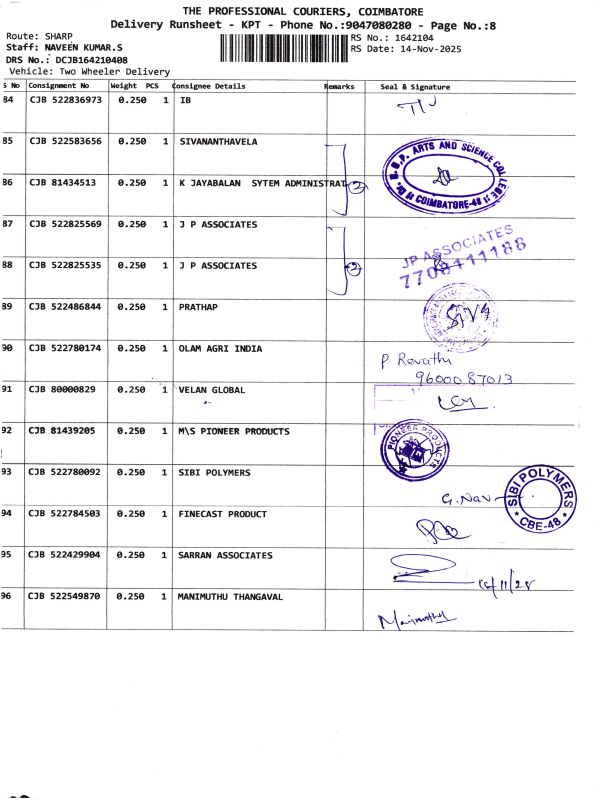 THE PROFESSIONAL COURIERS, COIMBATORE
Delivery Runsheet - KPT - Phone No.:9047080280 - Page No.:8
Route: SHARP
RS No.: 1642104
Staff: NAVEEN KUMAR.S
RS Date: 14-Nov-2025
DRS No.: DCJB164210408
Vehicle: Two Wheeler Delivery
S No Consignment No Weight PCS Consignee Details Remarks Seal & Signature
84 CJB 522836973 0.250 1 IB
85 CJB 522583656 0.250 1 SIVANANTHAVELA
ARTS AND SCIENCE COLLEGE
COIMBATORE-48
86 CJB 81434513 0.250 1 K JAYABALAN SYTEM ADMINISTRAT 2
87 CJB 522825569 0.250 1 J P ASSOCIATES
JP ASSOCIATES
88 CJB 522825535 0.250 1 J P ASSOCIATES 2
7708111188
89 CJB 522486844 0.250 1 PRATHAP
90 CJB 522780174 0.250 1 OLAM AGRI INDIA
P Revathi
9600087013
91 CJB 80000829 0.250 1 VELAN GLOBAL
92 CJB 81439205 0.250 1 M\S PIONEER PRODUCTS
PIONEER PRODUCTS
93 CJB 522780092 0.250 1 SIBI POLYMERS
G. Nav
SIBI POLYMERS
* CBE-48 *
94 CJB 522784503 0.250 1 FINECAST PRODUCT
95 CJB 522429904 0.250 1 SARRAN ASSOCIATES
96 CJB 522549870 0.250 1 MANIMUTHU THANGAVAL